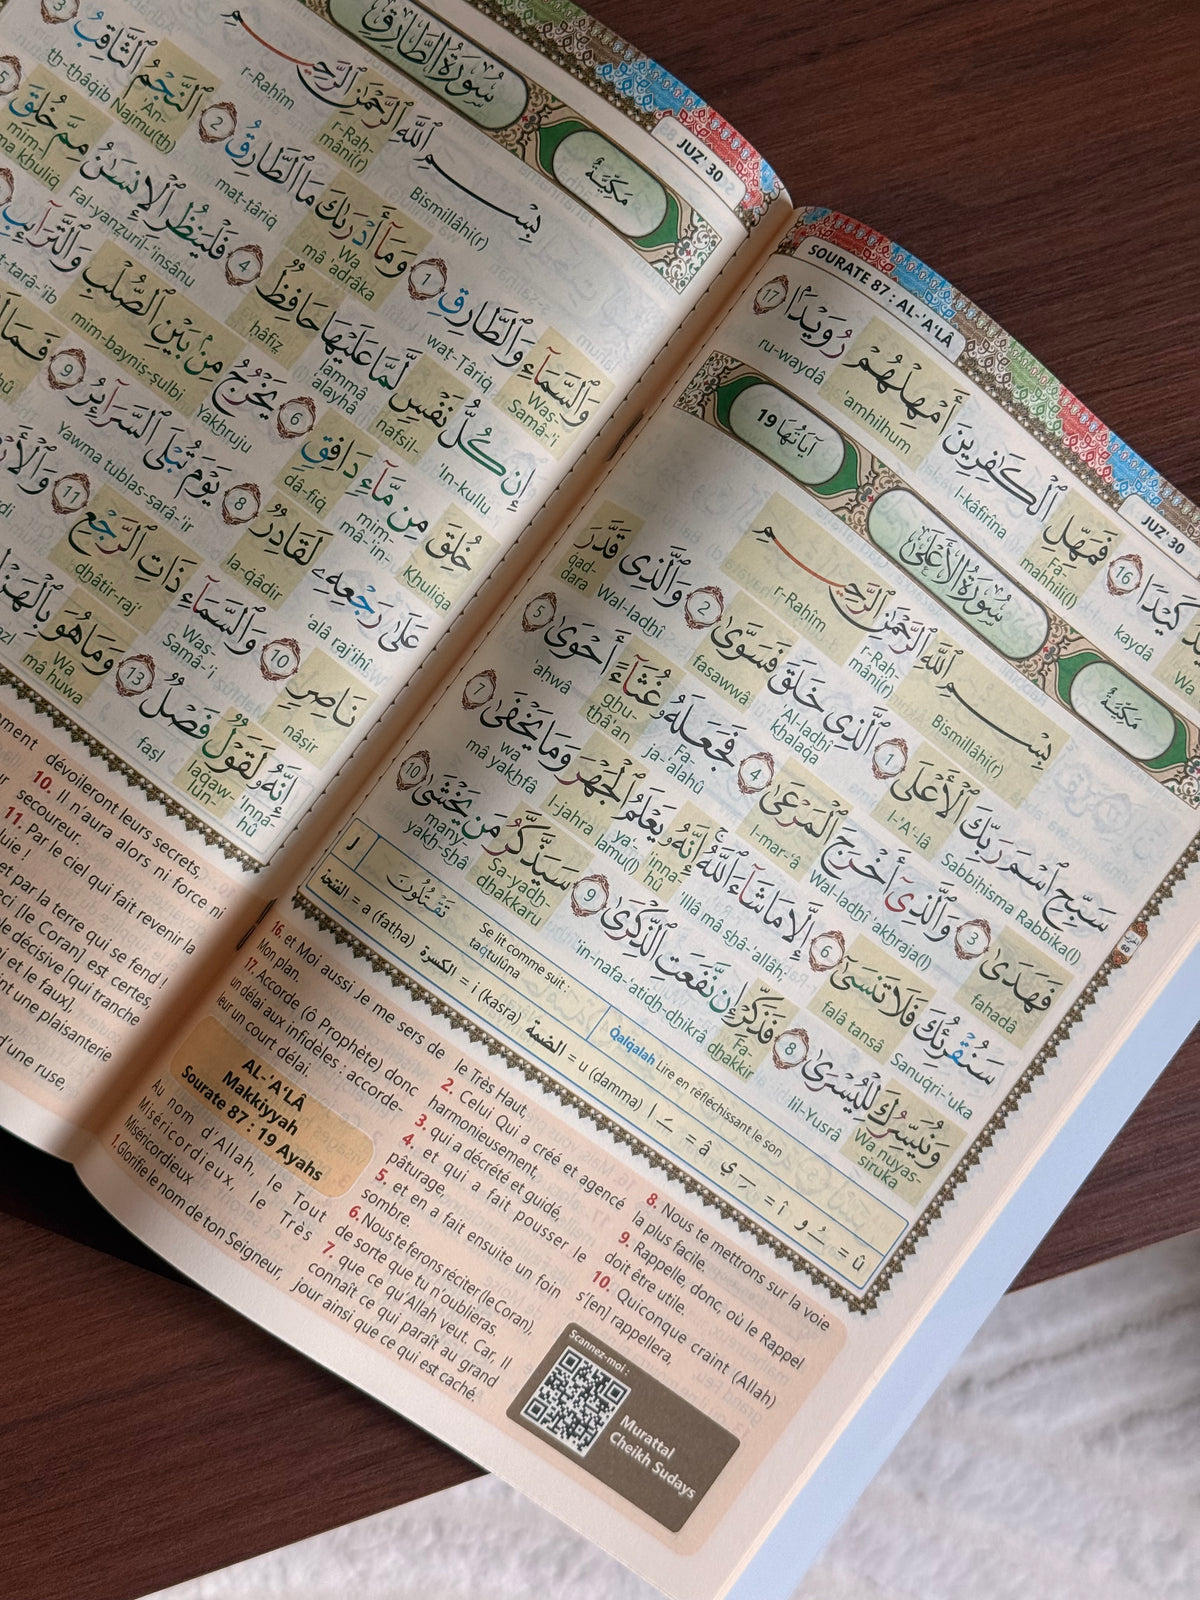 JUZ' 30
سُورَةُ الطَّارِقِ
مَكِّيَّةٌ
بِسْمِ ٱللَّهِ ٱلرَّحْمَٰنِ ٱلرَّحِيمِ
Bismillâhi(r) r-Rah-mâni(r) r-Raḥîm
وَٱلسَّمَآءِ وَٱلطَّارِقِ 1 وَمَآ أَدْرَىٰكَ مَا ٱلطَّارِقُ 2 ٱلنَّجْمُ ٱلثَّاقِبُ 3
Was-Samâ-'i waṭ-Ṭâriq Wa mâ 'adrâka maṭ-ṭâriq 'An-Najmu(th) th-thâqib
إِن كُلُّ نَفْسٍ لَّمَّا عَلَيْهَا حَافِظٌ 4 فَلْيَنظُرِ ٱلْإِنسَٰنُ مِمَّ خُلِقَ
'In-kullu nafsil-lammâ 'alayhâ ḥâfiẓ Fal-yanẓuril-'insânu mim-ma khuliq
خُلِقَ مِن مَّآءٍ دَافِقٍ 6 يَخْرُجُ مِنۢ بَيْنِ ٱلصُّلْبِ وَٱلتَّرَآئِبِ
Khuliqa mim-mâ-'in-dâ-fiq Yakhruju mim-bayniṣ-ṣulbi
عَلَىٰ رَجْعِهِۦ لَقَادِرٌ 8 يَوْمَ تُبْلَى ٱلسَّرَآئِرُ 9 فَمَا
'alâ raj'ihî la-qâdir Yawma tublas-sarâ-'ir
نَاصِرٍ 10 وَٱلسَّمَآءِ ذَاتِ ٱلرَّجْعِ 11
nâṣir Was-Samâ-'i dhâtir-raj'
إِنَّهُۥ لَقَوْلٌ فَصْلٌ 13 وَمَا هُوَ بِٱلْهَزْلِ
'inna-hû laqaw-lun- faṣl Wa mâ huwa
dévoileront leurs secrets,
10. Il n'aura alors ni force ni
secoureur.
11. Par le ciel qui fait revenir la
et par la terre qui se fend !
ceci [le Coran] est certes,
décisive [qui tranche
et le faux],
une plaisanterie
d'une ruse,
SOURATE 87 : AL-'A'LÂ
JUZ' 30
كَيْدًا 16 فَمَهِّلِ ٱلْكَٰفِرِينَ أَمْهِلْهُمْ رُوَيْدًۢا 17
kaydâ Fa-mahhili(l) l-kâfirîna 'amhilhum ru-waydâ
مَكِّيَّةٌ
سُورَةُ الأَعْلَىٰ
آيَاتُهَا 19
بِسْمِ ٱللَّهِ ٱلرَّحْمَٰنِ ٱلرَّحِيمِ
Bismillâhi(r) r-Rah-mâni(r) r-Raḥîm
سَبِّحِ ٱسْمَ رَبِّكَ ٱلْأَعْلَى 1 ٱلَّذِى خَلَقَ فَسَوَّىٰ 2 وَٱلَّذِى قَدَّرَ
Sabbiḥisma Rabbika(l) l-'A'-lâ 'Al-ladhî khalaqa fasawwâ Wal-ladhî qad-dara
فَهَدَىٰ 3 وَٱلَّذِىٓ أَخْرَجَ ٱلْمَرْعَىٰ 4 فَجَعَلَهُۥ غُثَآءً أَحْوَىٰ 5
fahadâ Wal-ladhî 'akhraja(l) l-mar-'â Fa-ja-'alahû ghu-thâ'an 'aḥwâ
سَنُقْرِئُكَ فَلَا تَنسَىٰٓ 6 إِلَّا مَا شَآءَ ٱللَّهُ إِنَّهُۥ يَعْلَمُ ٱلْجَهْرَ وَمَا يَخْفَىٰ 7
Sanuqri-'uka falâ tansâ 'Illâ mâ shâ-'allâh; 'inna-hû ya-lamu(l) l-jahra wa mâ yakhfâ
وَنُيَسِّرُكَ لِلْيُسْرَىٰ 8 فَذَكِّرْ إِن نَّفَعَتِ ٱلذِّكْرَىٰ 9 سَيَذَّكَّرُ مَن يَخْشَىٰ 10
Wa nuyas-siruka lil-Yusrâ Fa-dhakkir 'in-nafa-'atidh-dhikrâ Sa-yadh-dhakkaru many-yakh-shâ
Qalqalah Lire en réfléchissant le son
Se lit comme suit :
taqtulûna
الفتحة = a (fatha) الكسرة = i (kasra) الضمة = u (ḍamma)
16. et Moi aussi Je me sers de
Mon plan.
17. Accorde (ô Prophète) donc
un délai aux infidèles : accorde-
leur un court délai.
AL-'A'LÂ
Makkiyyah
Sourate 87 : 19 Ayahs
Au nom d'Allah, le Tout
Miséricordieux, le Très
Miséricordieux
1. Glorifie le nom de ton Seigneur,
le Très Haut,
2. Celui Qui a créé et agencé
harmonieusement,
3. qui a décrété et guidé,
4. et qui a fait pousser le
pâturage,
5. et en a fait ensuite un foin
sombre.
6. Nous te ferons réciter (le Coran),
de sorte que tu n'oublieras.
7. que ce qu'Allah veut. Car, Il
connaît ce qui paraît au grand
jour ainsi que ce qui est caché.
8. Nous te mettrons sur la voie
la plus facile.
9. Rappelle, donc, où le Rappel
doit être utile.
10. Quiconque craint (Allah)
s'[en] rappellera,
Scannez-moi :
Murattal
Cheikh Sudays